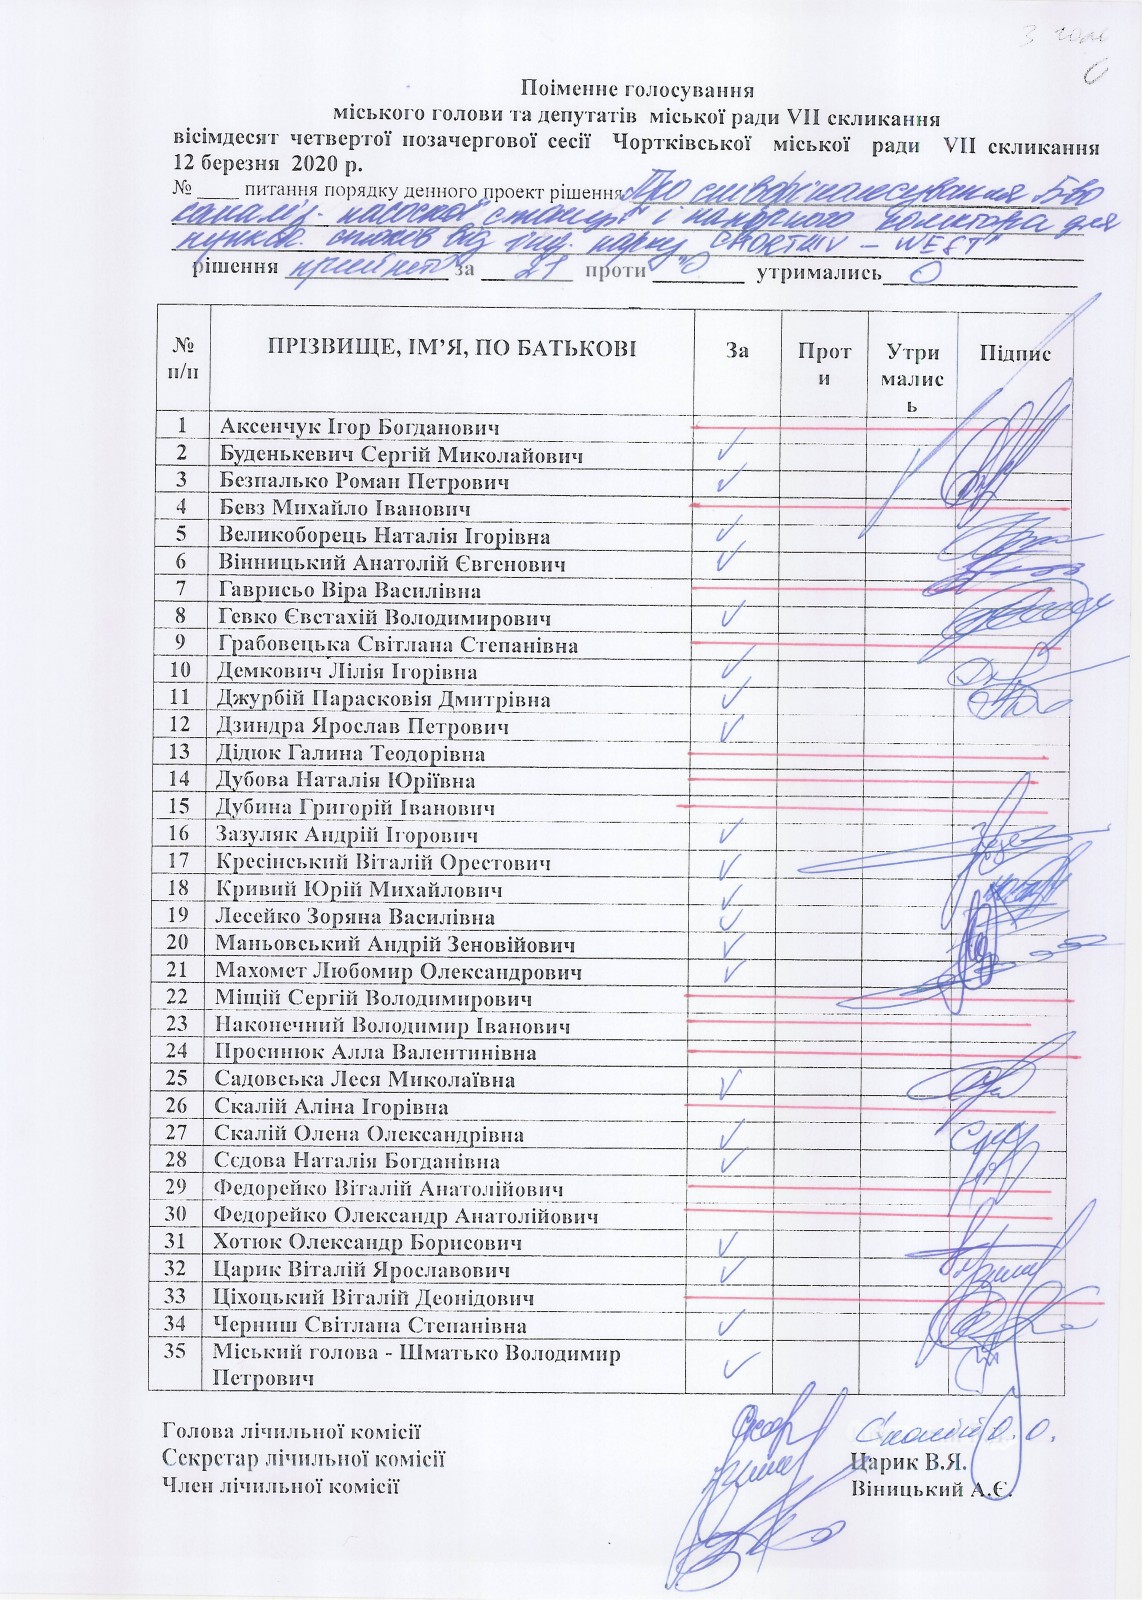 З голе
Поіменне голосування
міського голови та депутатів міської ради VII скликання
вісімдесят четвертої позачергової сесії Чортківської міської ради VII скликання
12 березня 2020 р.
№ ____ питання порядку денного проект рішення Про співфінансування б-во
каналіз. насосної станції і напірного колектора для
пункт. стоків від інд. парку "CHORTKIV – WEST"
рішення прийнято за 21 проти 0 утримались 0
№ п/п ПРІЗВИЩЕ, ІМ’Я, ПО БАТЬКОВІ За Проти Утрималиcь Підпис
1 Аксенчук Ігор Богданович
2 Буденькевич Сергій Миколайович ✓
3 Безпалько Роман Петрович ✓
4 Бевз Михайло Іванович
5 Великоборець Наталія Ігорівна ✓
6 Вінницький Анатолій Євгенович ✓
7 Гаврисьо Віра Василівна
8 Гевко Євстахій Володимирович ✓
9 Грабовецька Світлана Степанівна
10 Демкович Лілія Ігорівна ✓
11 Джурбій Парасковія Дмитрівна ✓
12 Дзиндра Ярослав Петрович ✓
13 Дідюк Галина Теодорівна
14 Дубова Наталія Юріївна
15 Дубина Григорій Іванович
16 Зазуляк Андрій Ігорович ✓
17 Кресінський Віталій Орестович ✓
18 Кривий Юрій Михайлович ✓
19 Лесейко Зоряна Василівна ✓
20 Маньовський Андрій Зеновійович ✓
21 Махомет Любомир Олександрович ✓
22 Міщій Сергій Володимирович
23 Наконечний Володимир Іванович
24 Просинюк Алла Валентинівна
25 Садовська Леся Миколаївна ✓
26 Скалій Аліна Ігорівна
27 Скалій Олена Олександрівна ✓
28 Сєдова Наталія Богданівна ✓
29 Федорейко Віталій Анатолійович
30 Федорейко Олександр Анатолійович
31 Хотюк Олександр Борисович ✓
32 Царик Віталій Ярославович ✓
33 Ціхоцький Віталій Деонідович
34 Черниш Світлана Степанівна ✓
35 Міський голова - Шматько Володимир
Петрович ✓
Голова лічильної комісії Скалій О.О.
Секретар лічильної комісії Царик В.Я.
Член лічильної комісії Віницький А.Є.